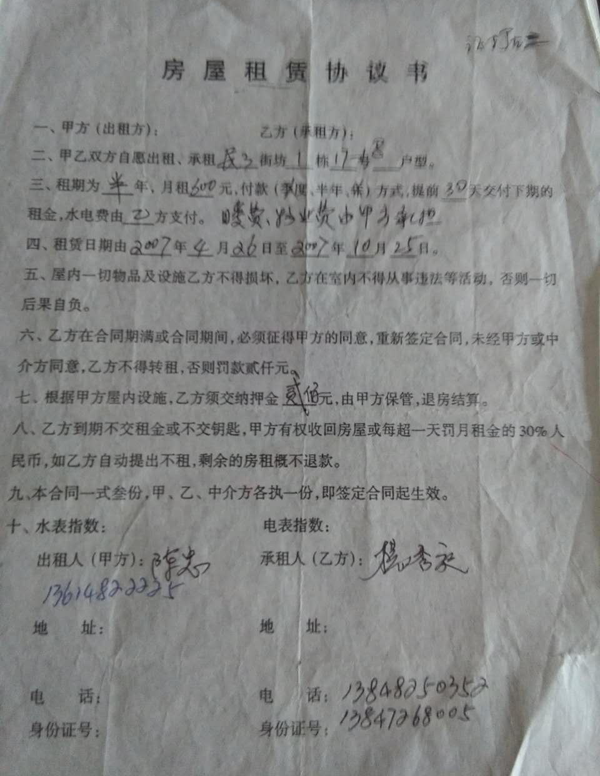 房屋租赁协议书
一、甲方（出租方）： 乙方（承租方）：
二、甲乙双方自愿出租、承租 街坊 1 栋 17 号 户型。
三、租期为 半 年、月租 600 元，付款（季度、半年、年）方式，提前 30 天交付下期的
租金，水电费由 乙 方支付。 暖费、物业费由甲方承担
四、租赁日期由 2007 年 4 月 26 日至 2007 年 10 月 25 日。
五、屋内一切物品及设施乙方不得损坏，乙方在室内不得从事违法等活动，否则一切
后果自负。
六、乙方在合同期满或合同期间，必须征得甲方的同意，重新签定合同，未经甲方或中
介方同意，乙方不得转租，否则罚款贰仟元。
七、根据甲方屋内设施，乙方须交纳押金 贰佰 元，由甲方保管，退房结算。
八、乙方到期不交租金或不交钥匙，甲方有权收回房屋或每超一天罚月租金的30%人
民币，如乙方自动提出不租，剩余的房租概不退款。
九、本合同一式叁份，甲、乙、中介方各执一份，即签定合同起生效。
十、水表指数： 电表指数：
出租人（甲方）： 陈志 承租人（乙方）： 杨秀
13614822225
地 址： 地 址：
电 话： 电 话： 13848250352
身份证号： 身份证号： 13847268005